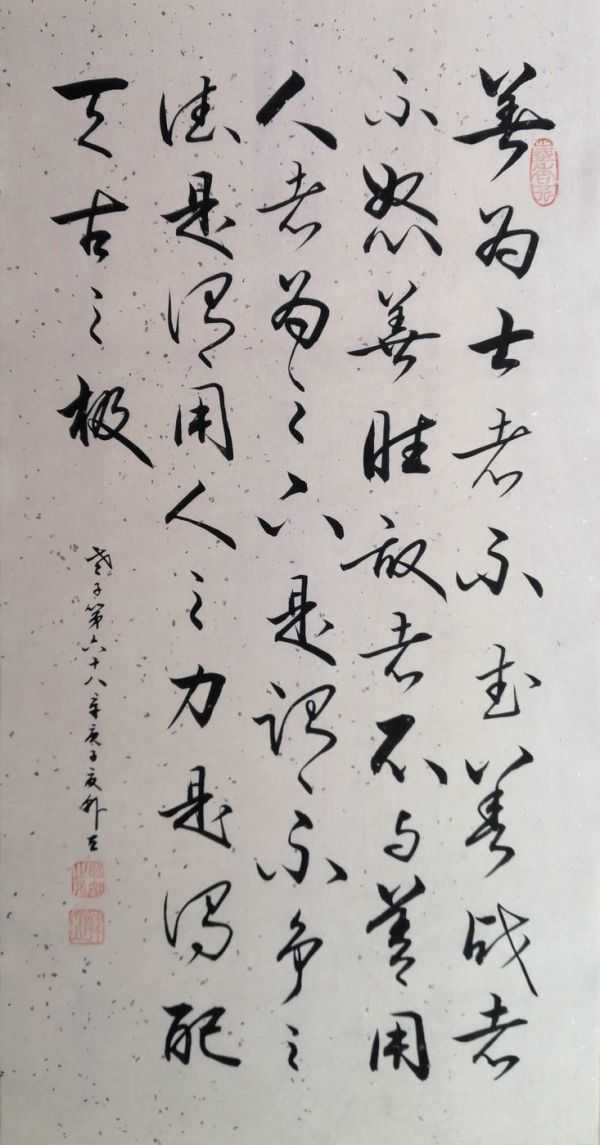 善为士者不武善战者
不怒善胜敌者不与善用
人者为之下是谓不争之
德是谓用人之力是谓配
天古之极
老子第六十八章庚子